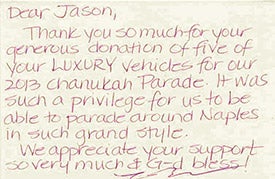 Dear Jason,
Thank you so much for your
generous donation of five of
your LUXURY vehicles for our
2013 Chanukah Parade. It was
such a privilege for us to be
able to parade around Naples
in such grand style.
We appreciate your support
so very much & G-d bless!